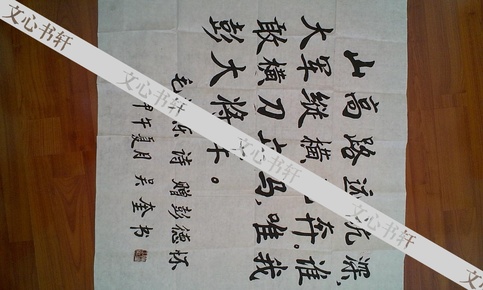 山高路远坑深,
大军縱横奔。谁
敢横刀马,唯我
彭大将。
毛东诗赠彭德怀
甲午夏月 吴奎书
文心书轩
文心书轩
文心书轩